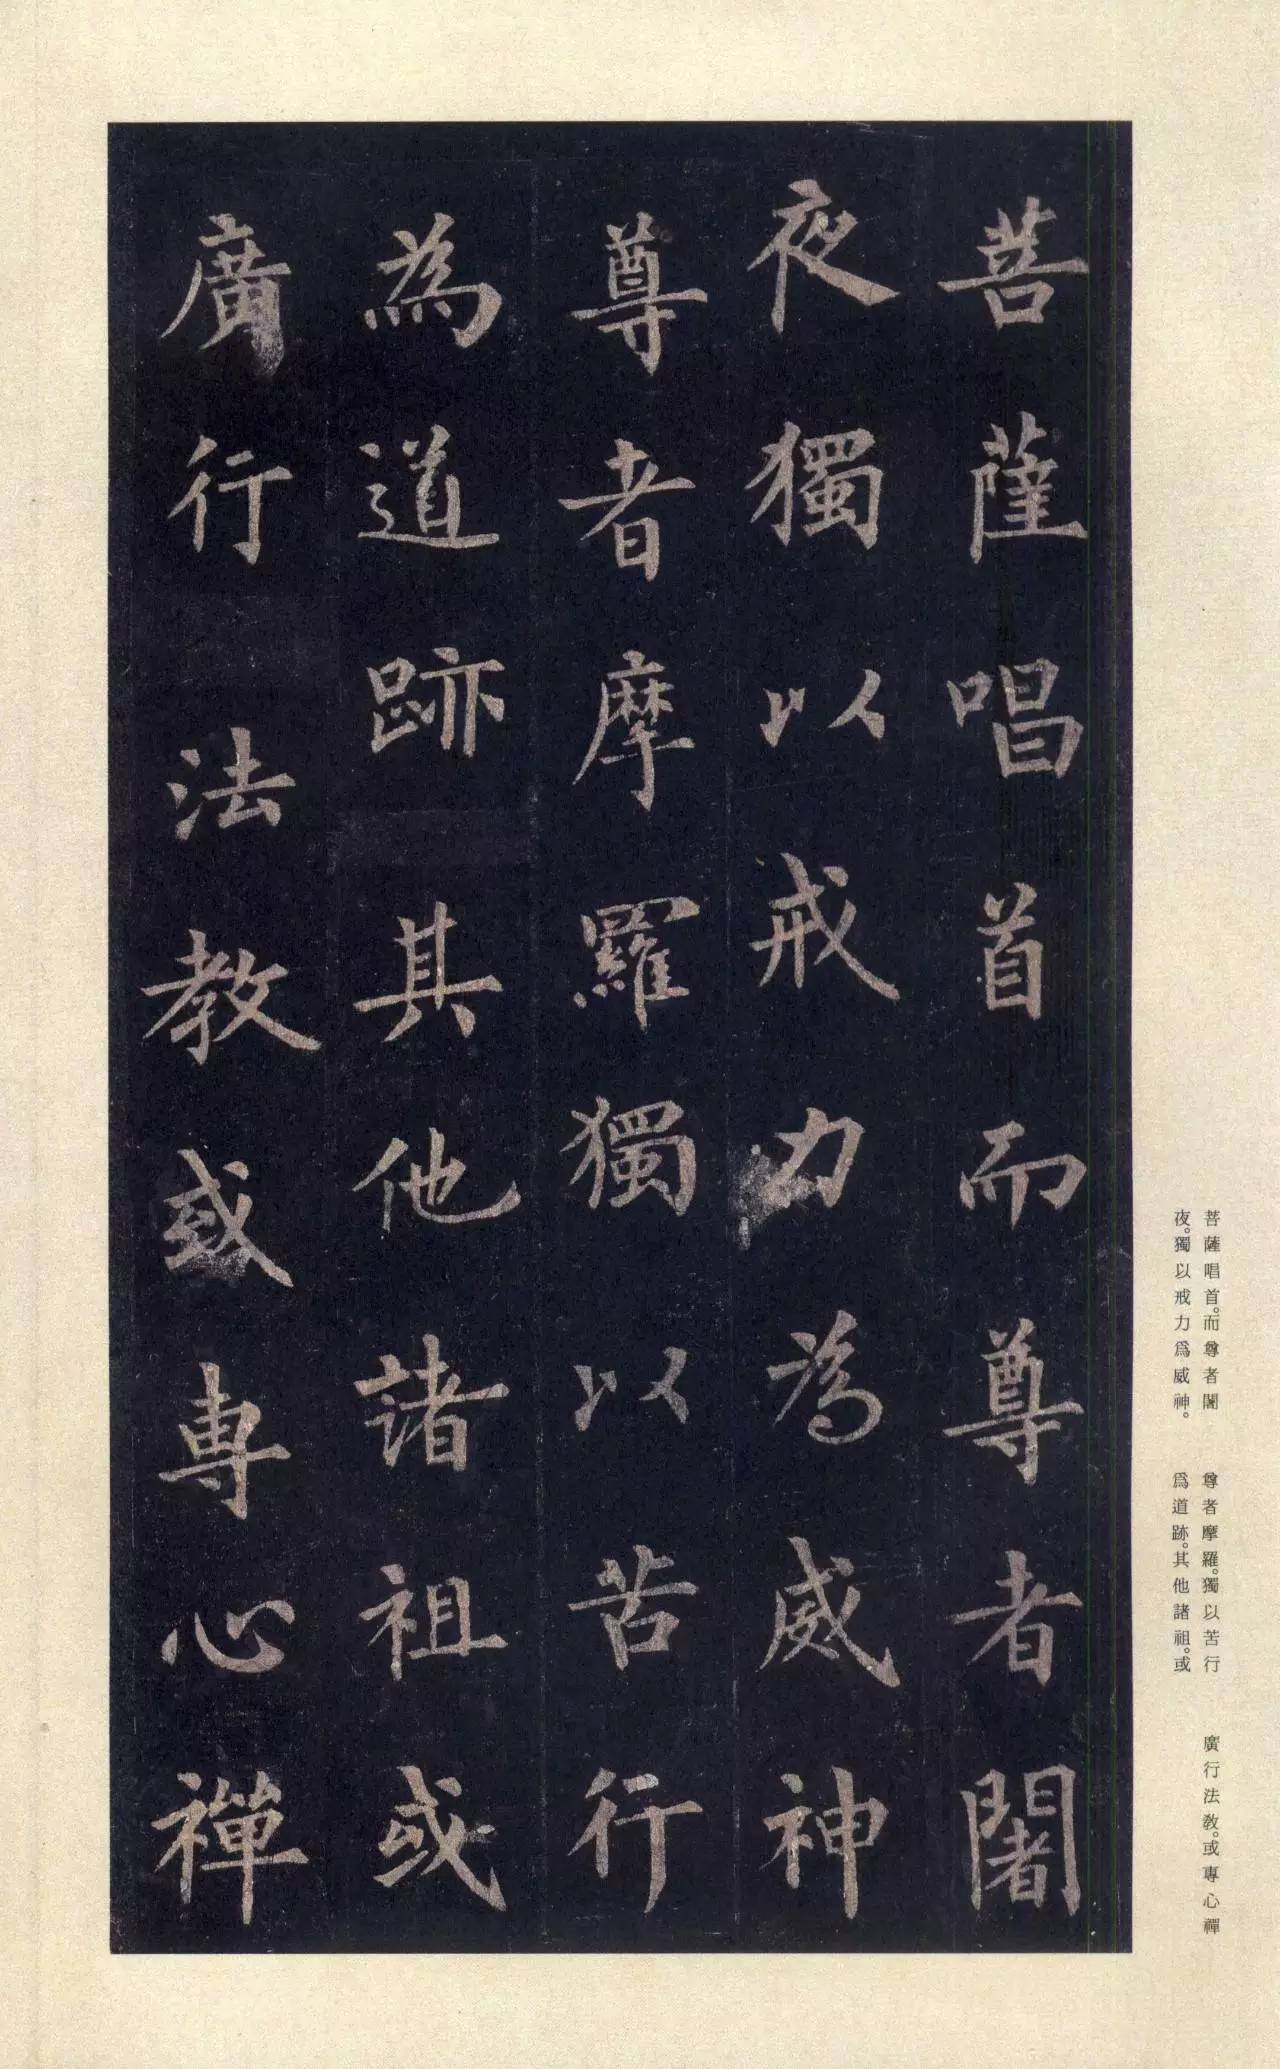 菩薩唱首而尊者闍
夜獨以戒力為威神
尊者摩羅獨以苦行
為道跡其他諸祖或
廣行法教或專心禪
菩薩唱首。而尊者闍
夜。獨以戒力爲威神。
尊者摩羅。獨以苦行
爲道跡。其他諸祖。或
廣行法教。或專心禪